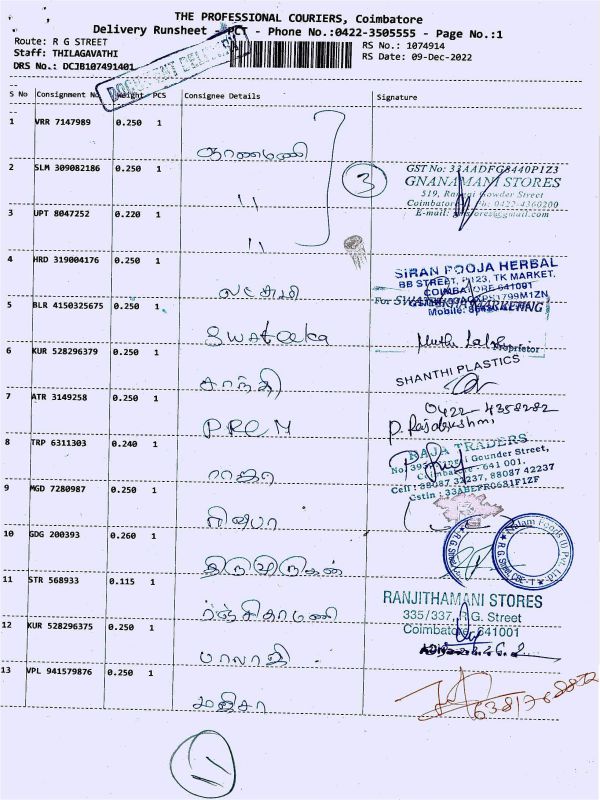 THE PROFESSIONAL COURIERS, Coimbatore
Delivery Runsheet - PCT - Phone No.:0422-3505555 - Page No.:1
Route: R G STREET
RS No.: 1074914
Staff: THILAGAVATHI
RS Date: 09-Dec-2022
DRS No.: DCJB107491401
DOCUMENT DELIVERY
S No Consignment No Weight PCS Consignee Details Signature
1 VRR 7147989 0.250 1
ஞானமணி
2 SLM 309082186 0.250 1
"
3
GST No: 33AADFG8440P1Z3
GNANAMANI STORES
519, Rangai Gowder Street
Coimbatore Ph: 0422-4360200
3 UPT 8047252 0.220 1
"
4 HRD 319004176 0.250 1
லட்சுமி
SIRAN POOJA HERBAL
BB STREET, P123, TK MARKET,
COIMBATORE 641001
For
MARKETING
Mobile:
5 BLR 4150325675 0.250 1
Swateeka
Proprietor
6 KUR 528296379 0.250 1
சாந்தி
SHANTHI PLASTICS
7 ATR 3149258 0.250 1
PREM
0422-4358282
P. Rajalakshmi
8 TRP 6311303 0.240 1
ராஜா
RAJA TRADERS
Gounder Street,
Coimbatore - 641 001.
Cell : 88087 32237, 88087 42237
Gstin : 33ABEPR0681F1ZF
9 MGD 7280987 0.250 1
10 GDG 200393 0.260 1
Nelam Foods (I) Pvt. Ltd
R.G.Street, CBE-1
11 STR 568933 0.115 1
ரஞ்சிதாமணி
RANJITHAMANI STORES
335/337, R.G. Street
Coimbatore 641001
12 KUR 528296375 0.250 1
பாலாஜி
13 VPL 941579876 0.250 1
மஜிசா
11